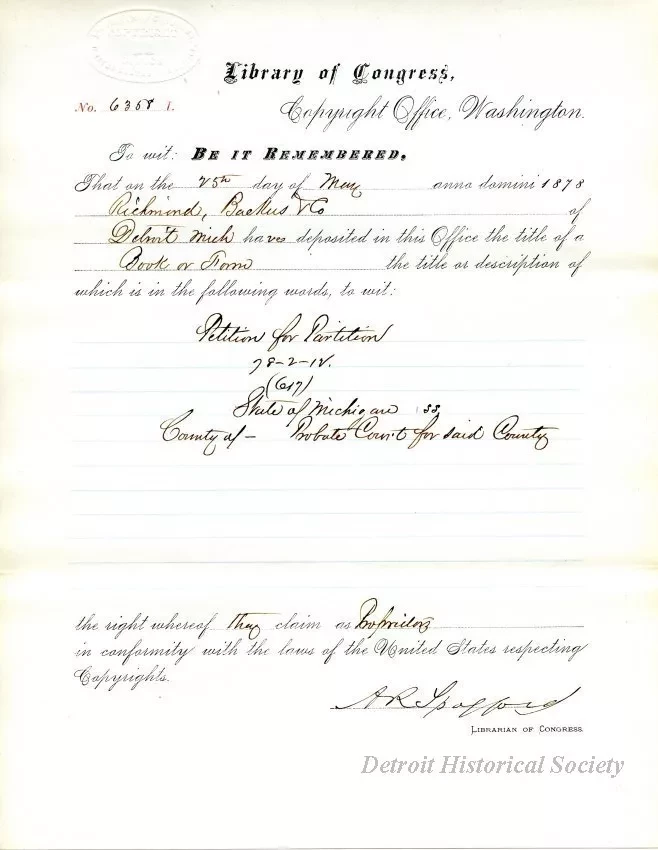 COPYRIGHT
Library of Congress,
No. 6358 I.
Copyright Office, Washington.
To wit: BE IT REMEMBERED,
That on the 25th day of May anno domini 1878
Richmond, Backus & Co of
Detroit Mich have deposited in this Office the title of a
Book or Form the title or description of
which is in the following words, to wit:
Petition for Partition
78-2-
(617)
State of Michigan ss
County of – Probate Court for said County
the right whereof they claim as Proprietors
in conformity with the laws of the United States respecting
Copyrights.
A R Spofford
LIBRARIAN OF CONGRESS.
Detroit Historical Society